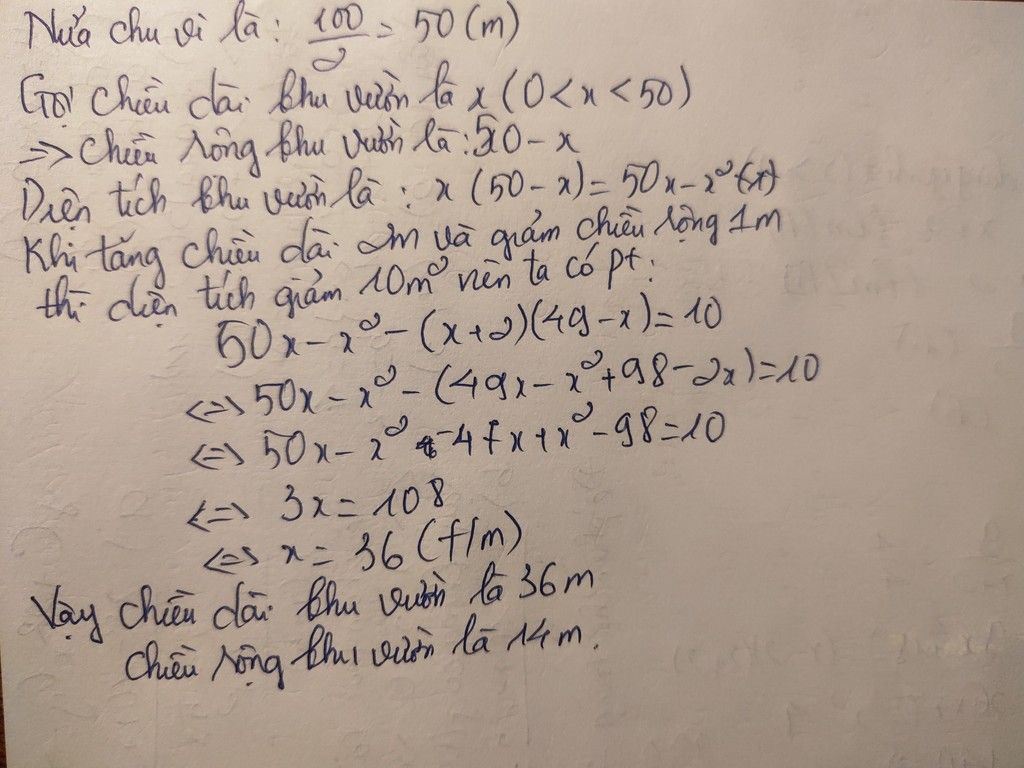 Nửa chu vi là: 100/2 = 50 (m)
Gọi chiều dài khu vườn là x (0 < x < 50)
=> Chiều rộng khu vườn là: 50 - x
Diện tích khu vườn là: x (50 - x) = 50x - x²
Khi tăng chiều dài 2m và giảm chiều rộng 1m
thì diện tích giảm 10m² nên ta có pt:
50x - x² - (x+2)(49-x) = 10
<=> 50x - x² - (49x - x² + 98 - 2x) = 10
<=> 50x - x² - 47x + x² - 98 = 10
<=> 3x = 108
<=> x = 36 (t/m)
Vậy chiều dài khu vườn là 36m
chiều rộng khu vườn là 14m.